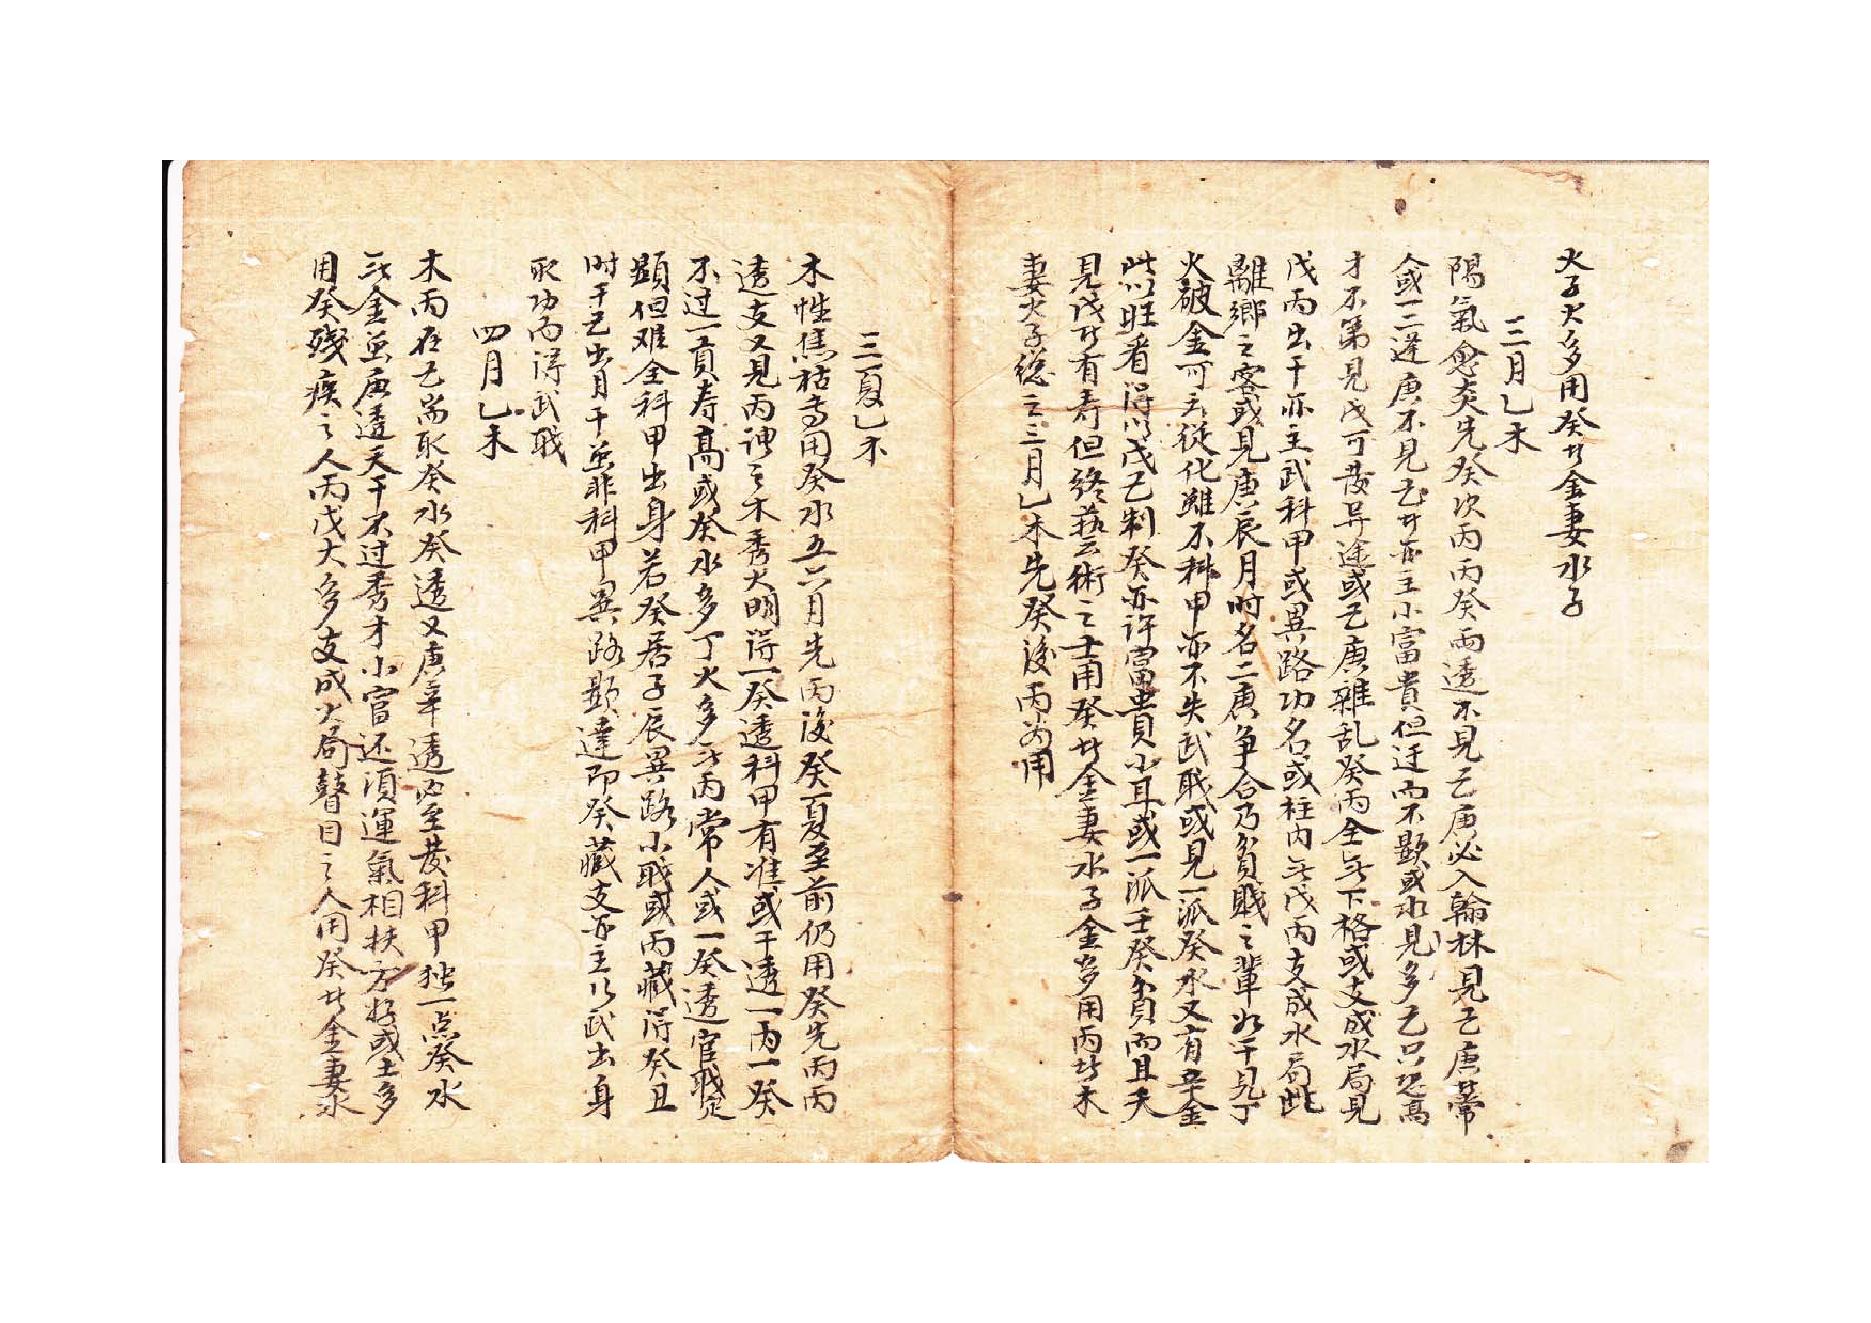 火子火多用癸廿金妻水子
三月乙木
陽氣愈炎先癸次丙丙癸兩透不見己庚必入翰林見己庚常
人或一二逢庚不見己廿亦主小富貴但迂而不顯或水見多己只恐高
才不第見戊可發异途或己庚雜乱癸丙全无下格或支成水局見
戊丙出干亦主武科甲或異路功名或柱内无戊丙支成水局此
離鄉之客或見庚辰月时名二庚争合乃貧賤之輩如干見丁
火破金可云從化雖不科甲亦不失武職或見一派癸水又有辛金
此以旺看得以戊己制癸亦许富貴小耳或一派壬癸貧而且夭
見戊廿有寿但終藝術之士用癸廿金妻水子金多用丙廿木
妻火子總之三月乙木先癸後丙为用
三夏乙木
木性焦枯专用癸水五六月先丙後癸夏至前仍用癸先丙丙
透支又見丙谓之木秀火明得一癸透科甲有准或干透一丙一癸
不过一貢寿高或癸水多丁火多无丙常人或一癸透官職定
顯但难全科甲出身若癸居子辰異路小職或丙藏得癸丑
时干己出月干並非科甲異路顯達即癸藏支亦主以武出身
取功丙得武職
四月乙木
木丙在己耑取癸水癸透又庚辛透必至發科甲独一点癸水
无金並庚透天干不过秀才小富还須運氣相扶方好或土多
用癸殘疾之人丙戊太多支成火局瞽目之人用癸廿金妻水